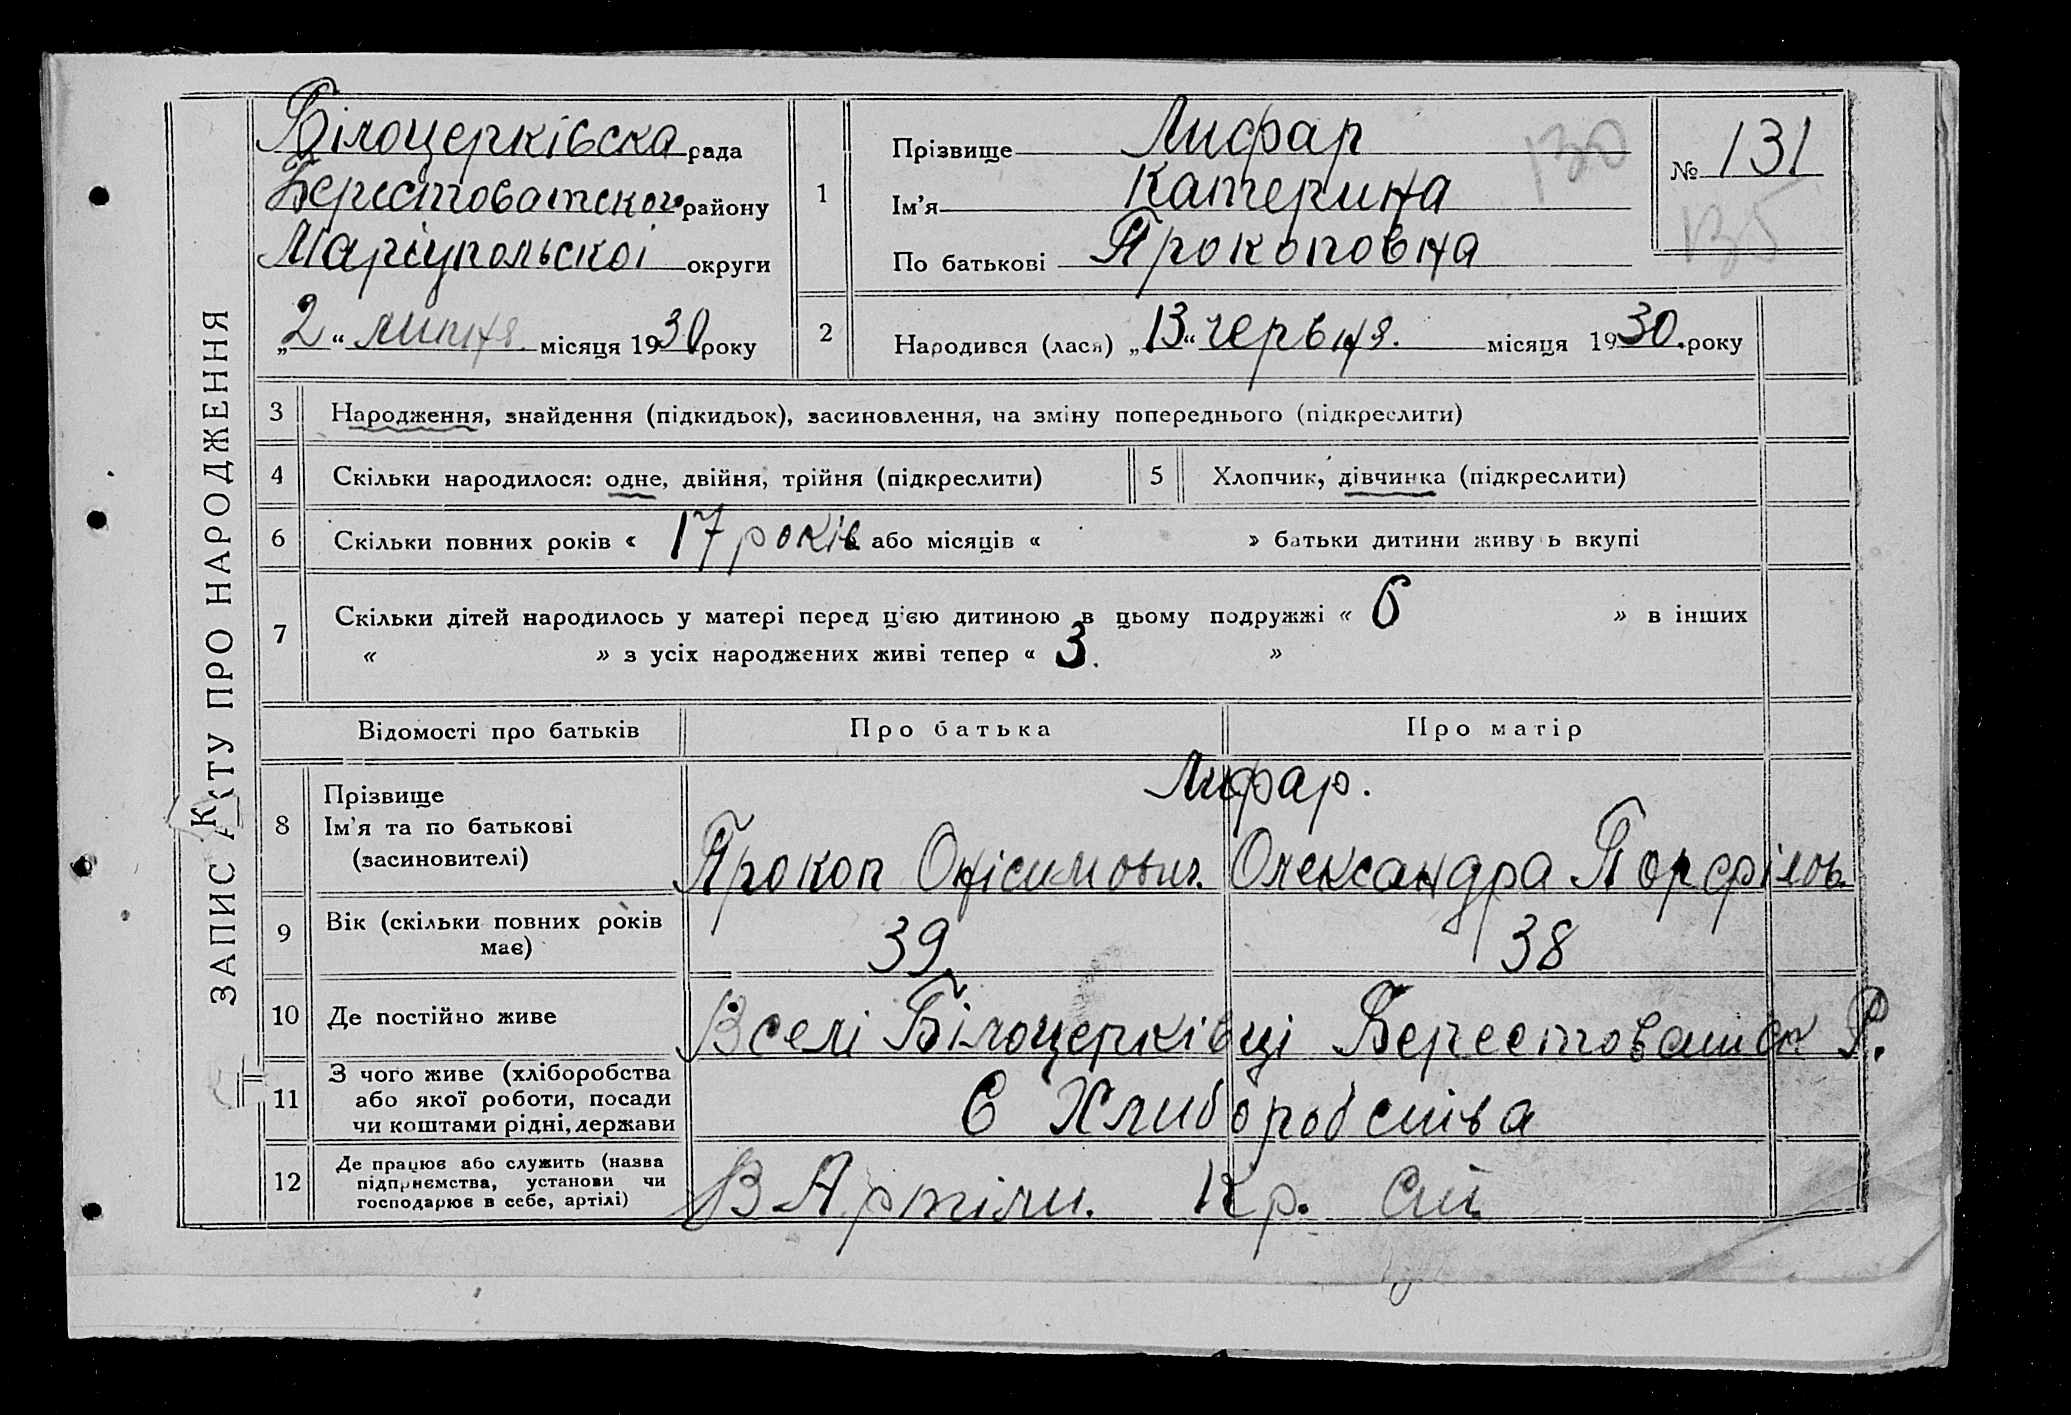 ЗАПИС АКТУ ПРО НАРОДЖЕННЯ
Білоцерківска рада
Берестоватского району
Маріупольскоі округи
„2“ липня місяця 1930 року
1
Прізвище Лифар
Ім’я Катерина
По батькові Прокоповна
130
№ 131
135
2
Народився (лася) „13“ червня. місяця 1930. року
3 Народження, знайдення (підкидьок), засиновлення, на зміну попереднього (підкреслити)
4 Скільки народилося: одне, двійня, трійня (підкреслити)
5 Хлопчик, дівчинка (підкреслити)
6 Скільки повних років « 17 років або місяців « » батьки дитини живу ь вкупі
7 Скільки дітей народилось у матері перед цією дитиною в цьому подружжі « 6 » в інших
« » з усіх народжених живі тепер « 3. »
Відомості про батьків Про батька Про матір
8 Прізвище
Ім’я та по батькові
(засиновителі)
Лифар.
Прокоп Онісимович. Олександра Порфілов.
9 Вік (скільки повних років
має)
39 38
10 Де постійно живе
В селі Білоцерківці Берестоватск Р.
11 З чого живе (хліборобства
або якої роботи, посади
чи коштами рідні, держави
С Хлиборобства
12 Де працює або служить (назва
підприємства, установи чи
господарює в себе, артілі)
В Артіли. Кр.